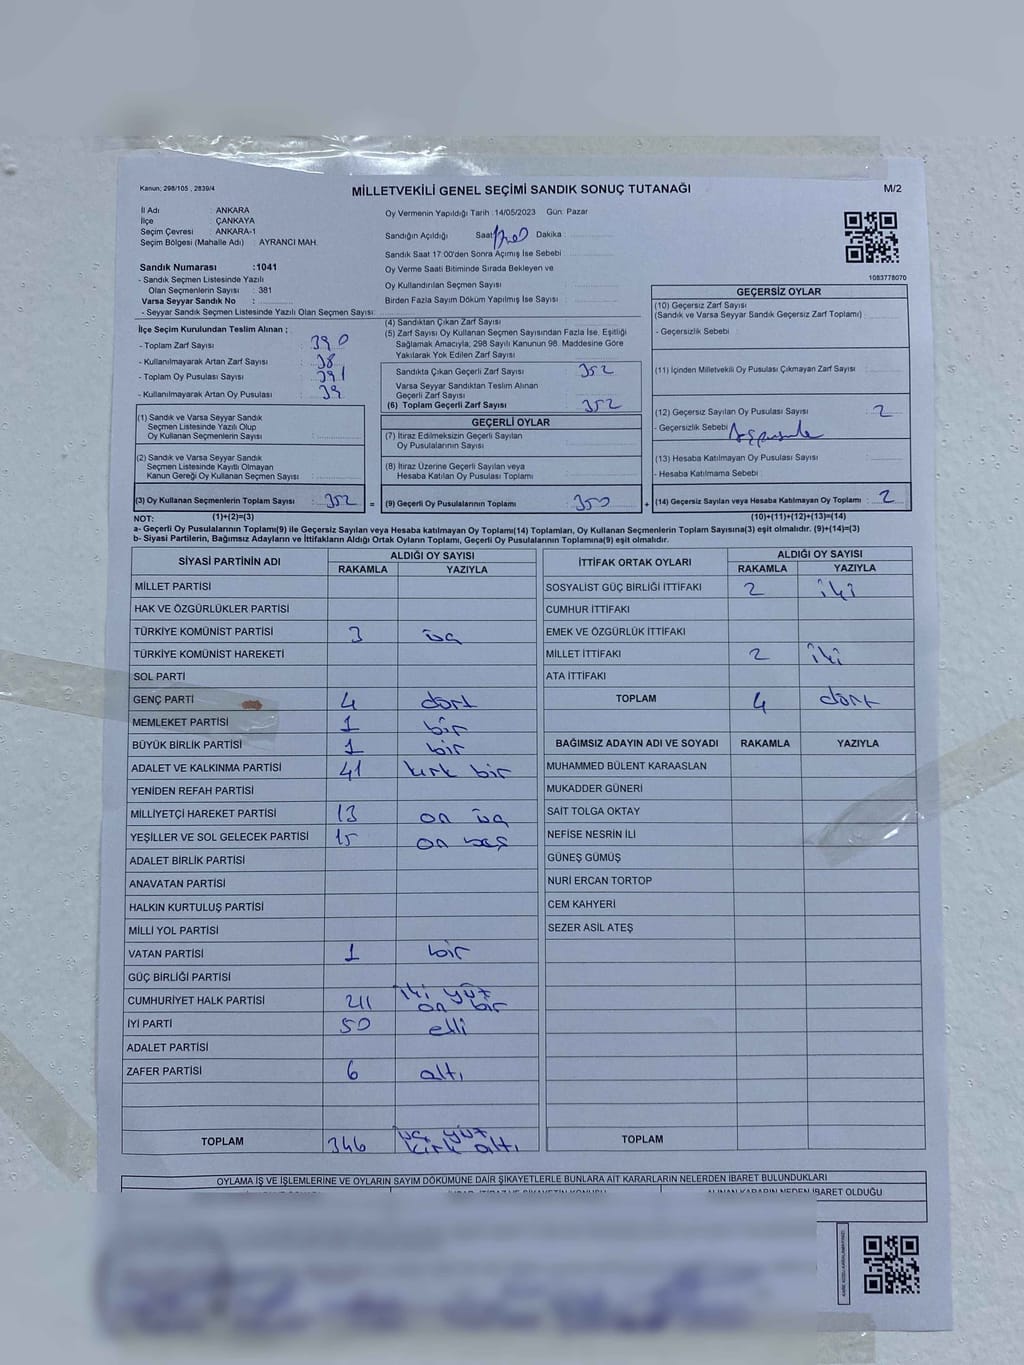 Kanun; 298/105 , 2839/4
MİLLETVEKİLİ GENEL SEÇİMİ SANDIK SONUÇ TUTANAĞI
M/2
İl Adı : ANKARA
İlçe : ÇANKAYA
Seçim Çevresi : ANKARA-1
Seçim Bölgesi (Mahalle Adı) : AYRANCI MAH.
Sandık Numarası :1041
- Sandık Seçmen Listesinde Yazılı
Olan Seçmenlerin Sayısı : 381
Varsa Seyyar Sandık No :
- Seyyar Sandık Seçmen Listesinde Yazılı Olan Seçmen Sayısı:
Oy Vermenin Yapıldığı Tarih : 14/05/2023 Gün: Pazar
Sandığın Açıldığı Saat Dakika :
Sandık Saat 17:00'den Sonra Açımış İse Sebebi :
Oy Verme Saati Bitiminde Sırada Bekleyen ve
Oy Kullandırılan Seçmen Sayısı :
Birden Fazla Sayım Döküm Yapılmış İse Sayısı :
1083778070
İlçe Seçim Kurulundan Teslim Alınan ;
- Toplam Zarf Sayısı : 390
- Kullanılmayarak Artan Zarf Sayısı : 38
- Toplam Oy Pusulası Sayısı : 391
- Kullanılmayarak Artan Oy Pusulası : 39
(1) Sandık ve Varsa Seyyar Sandık
Seçmen Listesinde Yazılı Olup
Oy Kullanan Seçmenlerin Sayısı :
(2) Sandık ve Varsa Seyyar Sandık
Seçmen Listesinde Kayıtlı Olmayan
Kanun Gereği Oy Kullanan Seçmen Sayısı :
(3) Oy Kullanan Seçmenlerin Toplam Sayısı : 352 =
(4) Sandıktan Çıkan Zarf Sayısı :
(5) Zarf Sayısı Oy Kullanan Seçmen Sayısından Fazla İse, Eşitliği
Sağlamak Amacıyla, 298 Sayılı Kanunun 98. Maddesine Göre
Yakılarak Yok Edilen Zarf Sayısı :
Sandıkta Çıkan Geçerli Zarf Sayısı : 352
Varsa Seyyar Sandıktan Teslim Alınan
Geçerli Zarf Sayısı :
(6) Toplam Geçerli Zarf Sayısı : 352
GEÇERLİ OYLAR
(7) İtiraz Edilmeksizin Geçerli Sayılan
Oy Pusulalarının Sayısı :
(8) İtiraz Üzerine Geçerli Sayılan veya
Hesaba Katılan Oy Pusulası Toplamı :
(9) Geçerli Oy Pusulalarının Toplamı : 350 +
GEÇERSİZ OYLAR
(10) Geçersiz Zarf Sayısı
(Sandık ve Varsa Seyyar Sandık Geçersiz Zarf Toplamı) :
- Geçersizlik Sebebi :
(11) İçinden Milletvekili Oy Pusulası Çıkmayan Zarf Sayısı :
(12) Geçersiz Sayılan Oy Pusulası Sayısı : 2
- Geçersizlik Sebebi
(13) Hesaba Katılmayan Oy Pusulası Sayısı :
- Hesaba Katılmama Sebebi :
(14) Geçersiz Sayılan veya Hesaba Katılmayan Oy Toplamı : 2
NOT: (1)+(2)=(3) (10)+(11)+(12)+(13)=(14)
a- Geçerli Oy Pusulalarının Toplamı(9) ile Geçersiz Sayılan veya Hesaba katılmayan Oy Toplamı(14) Toplamları, Oy Kullanan Seçmenlerin Toplam Sayısına(3) eşit olmalıdır. (9)+(14)=(3)
b- Siyasi Partilerin, Bağımsız Adayların ve İttifakların Aldığı Ortak Oyların Toplamı, Geçerli Oy Pusulalarının Toplamına(9) eşit olmalıdır.
SİYASİ PARTİNİN ADI ALDIĞI OY SAYISI
RAKAMLA YAZIYLA
MİLLET PARTİSİ
HAK VE ÖZGÜRLÜKLER PARTİSİ
TÜRKİYE KOMÜNİST PARTİSİ 3 üç
TÜRKİYE KOMÜNİST HAREKETİ
SOL PARTİ
GENÇ PARTİ 4 dört
MEMLEKET PARTİSİ 1 bir
BÜYÜK BİRLİK PARTİSİ 1 bir
ADALET VE KALKINMA PARTİSİ 41 kırk bir
YENİDEN REFAH PARTİSİ
MİLLİYETÇİ HAREKET PARTİSİ 13 on üç
YEŞİLLER VE SOL GELECEK PARTİSİ 15 on beş
ADALET BİRLİK PARTİSİ
ANAVATAN PARTİSİ
HALKIN KURTULUŞ PARTİSİ
MİLLİ YOL PARTİSİ
VATAN PARTİSİ 1 bir
GÜÇ BİRLİĞİ PARTİSİ
CUMHURİYET HALK PARTİSİ 211 iki yüz
on bir
İYİ PARTİ 50 elli
ADALET PARTİSİ
ZAFER PARTİSİ 6 altı
TOPLAM 346 üç yüz
kırk altı
İTTİFAK ORTAK OYLARI ALDIĞI OY SAYISI
RAKAMLA YAZIYLA
SOSYALİST GÜÇ BİRLİĞİ İTTİFAKI 2 iki
CUMHUR İTTİFAKI
EMEK VE ÖZGÜRLÜK İTTİFAKI
MİLLET İTTİFAKI 2 iki
ATA İTTİFAKI
TOPLAM 4 dört
BAĞIMSIZ ADAYIN ADI VE SOYADI RAKAMLA YAZIYLA
MUHAMMED BÜLENT KARAASLAN
MUKADDER GÜNERİ
SAİT TOLGA OKTAY
NEFİSE NESRİN İLİ
GÜNEŞ GÜMÜŞ
NURİ ERCAN TORTOP
CEM KAHYERİ
SEZER ASİL ATEŞ
TOPLAM
OYLAMA İŞ VE İŞLEMLERİNE VE OYLARIN SAYIM DÖKÜMÜNE DAİR ŞİKAYETLERLE BUNLARA AİT KARARLARIN NELERDEN İBARET BULUNDUKLARI
ALINAN KARARIN NEDEN İBARET OLDUĞU